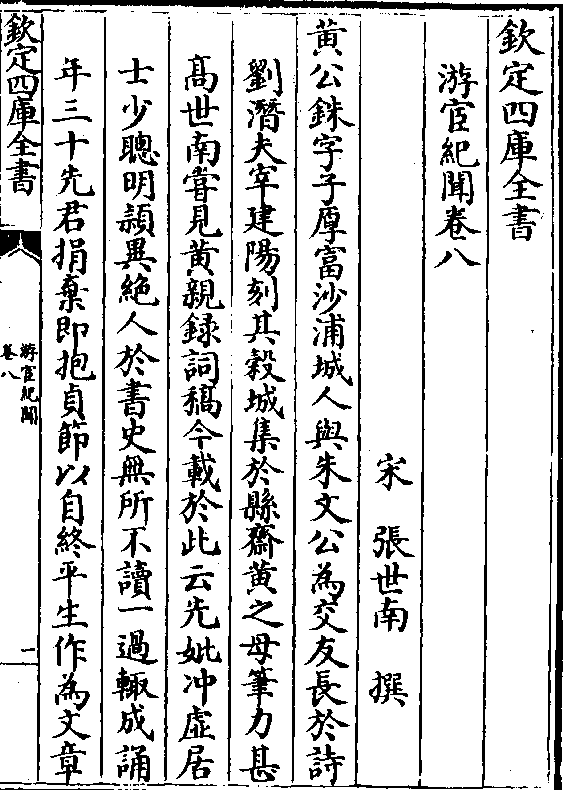 欽定四庫全書
游宦紀聞卷八
宋 張世南 撰
黄公銖字子厚富沙浦城人與朱文公為交友長於詩
劉潛夫宰建陽刻其穀城集於縣齋黄之母筆力甚
高世南嘗見黄親録詞稿今載於此云先妣冲虛居
士少聰明頴異絶人於書史無所不讀一過輙成誦
年三十先君捐棄即抱貞節以自終平生作為文章
欽定四庫全書
游宦紀聞
卷八
一